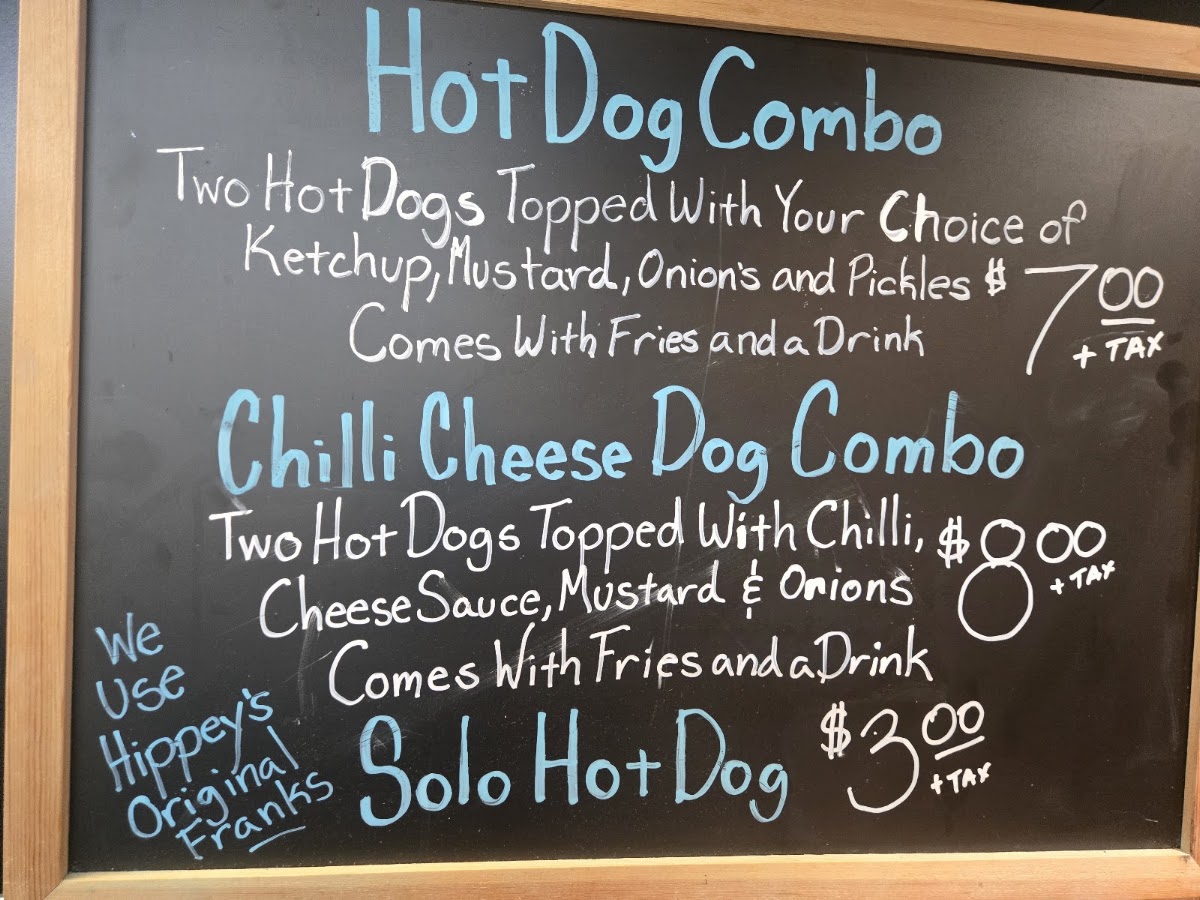 Hot Dog Combo
Two Hot Dogs Topped With Your Choice of
Ketchup, Mustard, Onion's and Pickles $7.00
+ TAX
Comes With Fries and a Drink
Chilli Cheese Dog Combo
Two Hot Dogs Topped With Chilli, $8.00
+ TAX
Cheese Sauce, Mustard & Onions
Comes With Fries and a Drink
Solo Hot Dog $3.00
+ TAX
We
Use
Hippey's
Original
Franks